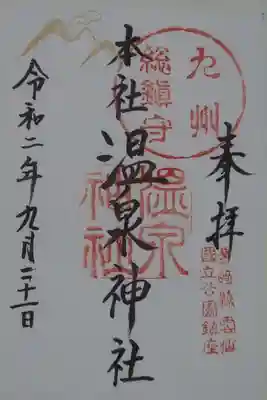 奉拝
長崎縣雲仙
國立公園鎮座
九州
総鎮守
本社温泉神社
温泉
神社
令和二年九月二十一日